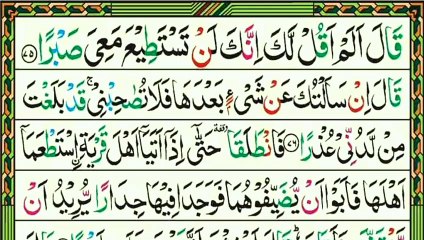 قَالَ اَلَمْ اَقُلْ لَّكَ اِنَّكَ لَنْ تَسْتَطِيْعَ مَعِىَ صَبْرًا ﴿٧٥﴾
قَالَ اِنْ سَاَلْتُكَ عَنْ شَىْءٍۢ بَعْدَهَا فَلَا تُصٰحِبْنِىْ ۚ قَدْ بَلَغْتَ
مِنْ لَّدُنِّىْ عُذْرًا ﴿٧٦﴾ فَانْطَلَقَا ۥ حَتّٰٓى اِذَاۤ اَتَيَاۤ اَهْلَ قَرْيَةِ ۟اسْتَطْعَمَاۤ
اَهْلَهَا فَاَبَوْا اَنْ يُّضَيِّفُوْهُمَا فَوَجَدَا فِيْهَا جِدَارًا يُّرِيْدُ اَنْ